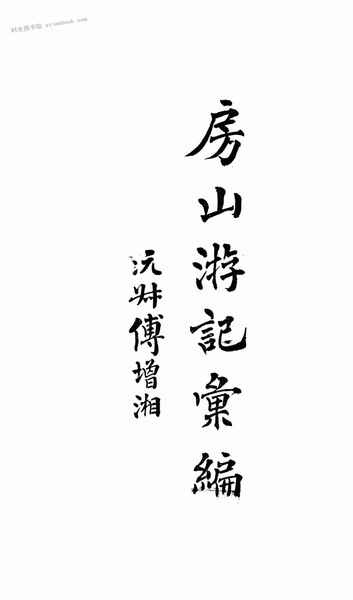 房山游記彙編
沅尗傅增湘